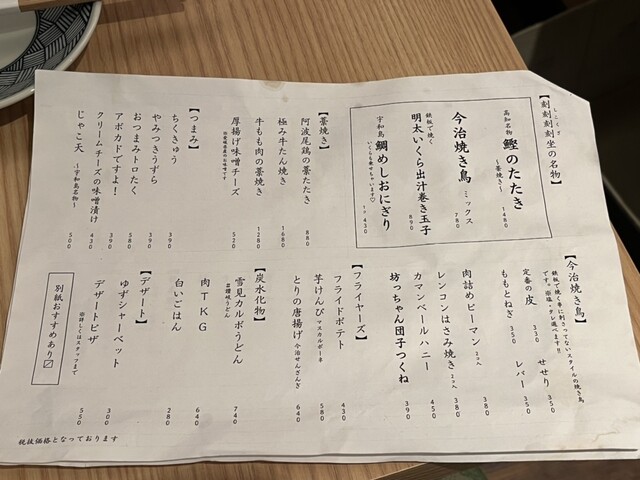 【刻刻刻刻坐の名物】
しこくざ
高知名物 鰹のたたき
〜藁焼き〜
1480
今治焼き鳥 ミックス
780
鉄板で焼く
明太いくら出汁巻き玉子
890
宇和島 鯛めしおにぎり
いくらも乗せちゃいます♡
1ヶ 430
【藁焼き】
阿波尾鶏の藁たたき
880
極み牛たん焼き
1680
牛もも肉の藁焼き
1280
厚揚げ味噌チーズ
520
【つまみ】
ちくきゅう
390
やみつきうずら
390
おつまみトロたく
580
アボカドですよ!
390
クリームチーズの味噌漬け
430
じゃこ天 〜宇和島名物〜
500
【今治焼き鳥】
鉄板で焼く串に刺さってないスタイルの焼き鳥
です。※塩・タレ選べます!!
定番の皮
330
せせり
350
ももとねぎ
350
レバー
350
肉詰めピーマン 2コ入
380
レンコンはさみ焼き 2コ入
380
カマンベールハニー
450
坊っちゃん団子つくね
390
【フライヤーズ】
フライドポテト
430
芋けんぴ マスカルポーネ
580
とりの唐揚げ 今治せんざんき
640
【炭水化物】
雪見カルボうどん
#讃岐うどん
740
肉TKG
640
白いごはん
280
【デザート】
ゆずシャーベット
300
デザートピザ
※詳しくはスタッフまで
550
別紙おすすめあり☑
税抜価格となっております